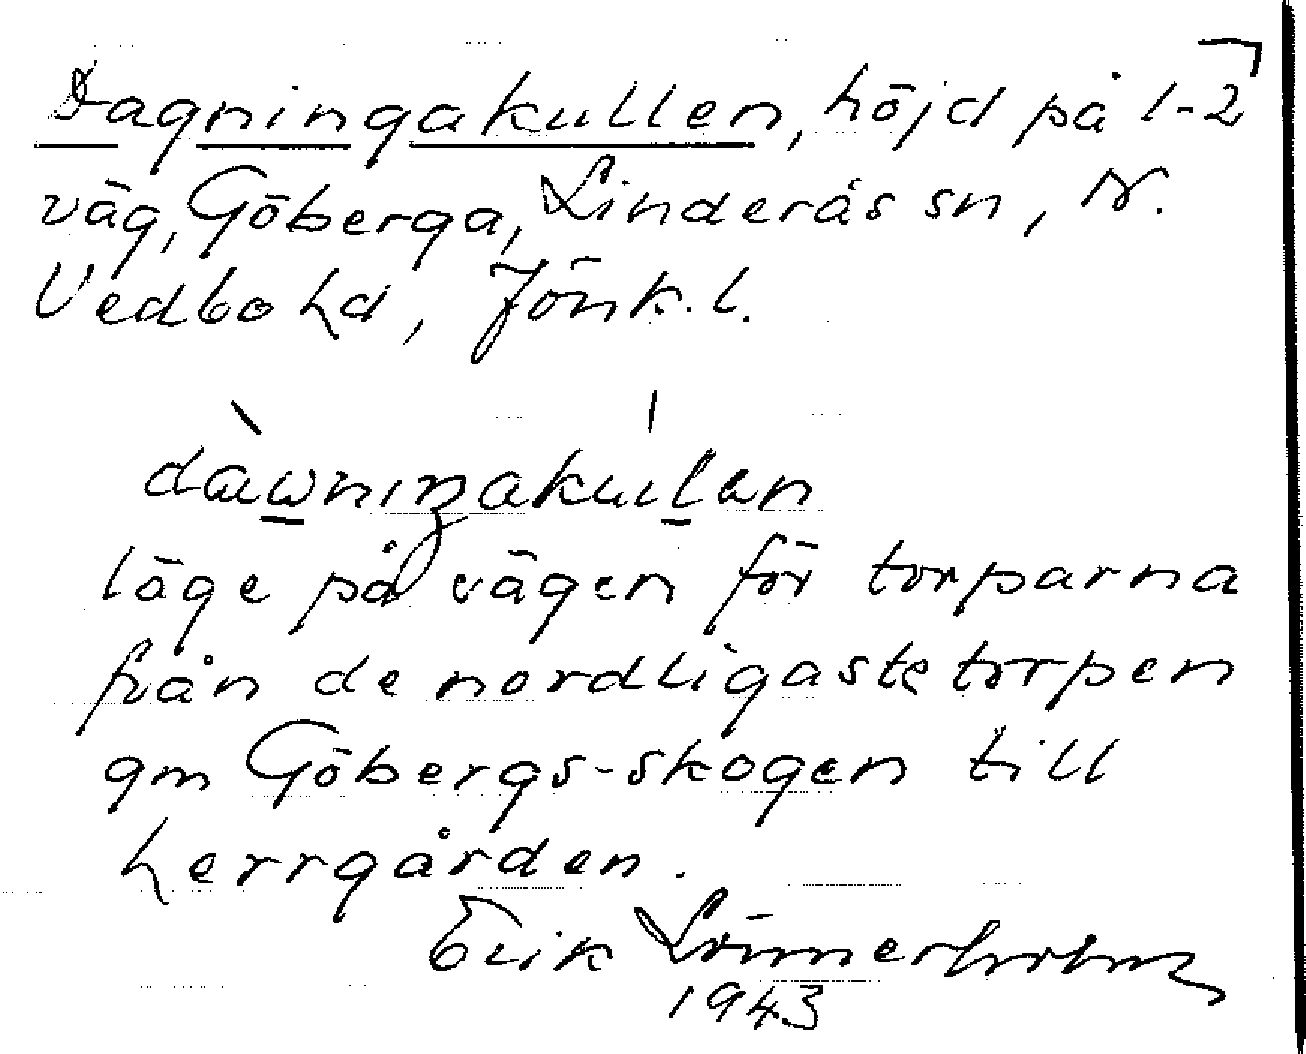 Dagningakullen, höjd på 1-2
väg, Göberga, Linderås sn, N.
Vedbo hd, Jönk. l.
läge på vägen för torparna
från de nordligaste torpen
gm Göbergs-skogen till
herrgården.
Erik Lönnerholm
1943